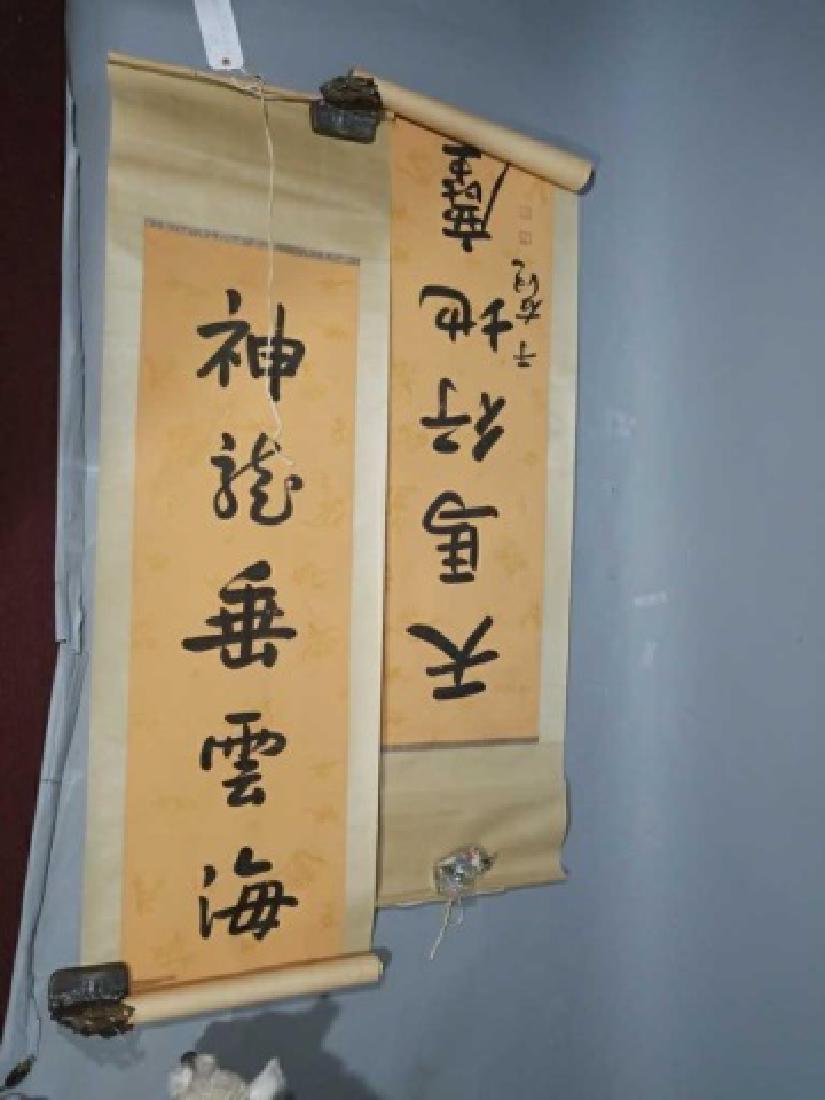 天馬行地
于右任
神龍垂雲海